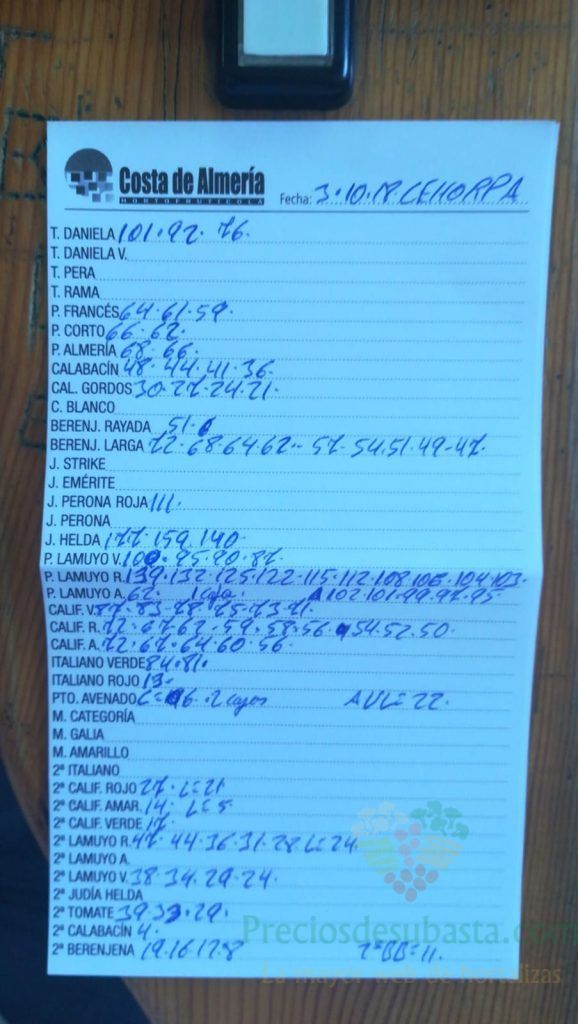 Costa de Almería
HORTOFRUTICOLA
Fecha: 3.10.18 CEHORPA
T. DANIELA 101.92.76.
T. DANIELA V.
T. PERA
T. RAMA
P. FRANCÉS 64.61.59.
P. CORTO 66.62.
P. ALMERÍA 68.66.
CALABACÍN 48.44.41.36.
CAL. GORDOS 30.27.24.21
C. BLANCO
BERENJ. RAYADA 51.
BERENJ. LARGA 72.68.64.62.-57.54.51.49-47.
J. STRIKE
J. EMÉRITE
J. PERONA ROJA 111.
J. PERONA
J. HELDA 177.159.140.
P. LAMUYO V. 100.95.90.87.
P. LAMUYO R. 139.132.125.122.115.112.108.106.104.103.
P. LAMUYO A. 62. 1 caja. 102.101.99.97.95
CALIF. V. 87.83.78.75.73.71.
CALIF. R. 72.67.62.59.58.56.54.52.50.
CALIF. A. 72.67.64.60.56.
ITALIANO VERDE 84.81.
ITALIANO ROJO 13.
PTO. AVENADO 2 cajas
M. CATEGORÍA
M. GALIA
M. AMARILLO
2ª ITALIANO
2ª CALIF. ROJO 27. L=21
2ª CALIF. AMAR. 14. L=5
2ª CALIF. VERDE 17.
2ª LAMUYO R. 47.44.36.31.28 L=24
2ª LAMUYO A.
2ª LAMUYO V. 38.34.29.24.
2ª JUDÍA HELDA
2ª TOMATE 39.33.29.
2ª CALABACÍN 4.
2ª BERENJENA 19.16.17.8 2ªBB=11.
Preciosdesubasta.com
La mayor web de hortalizas